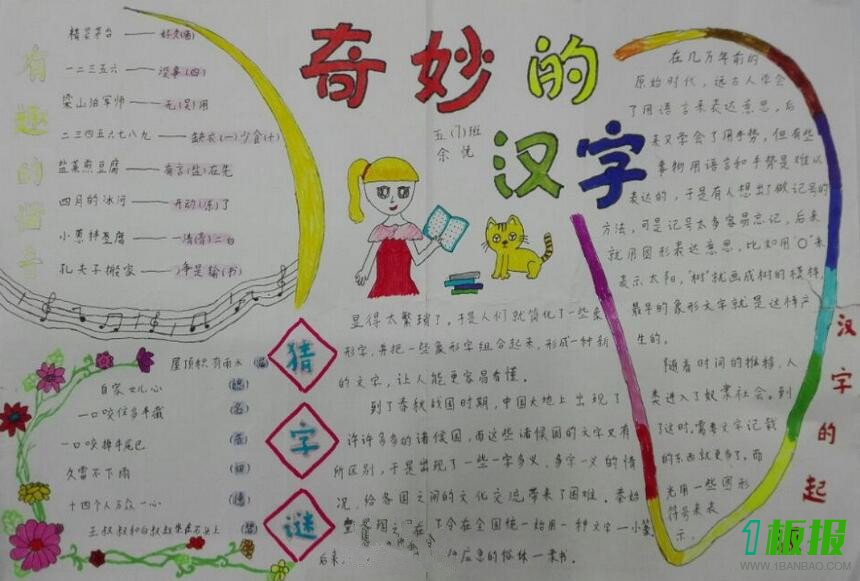 奇妙的
汉字
五(1)班
余悦
有趣的谐音
一二三五六——没事(四)
梁山泊军师——无(吴)用
二三四五六七八九——缺衣(一)少食(十)
盐煎豆腐——有言(盐)在先
四月的冰河——开动(冻)了
小葱拌豆腐——一清(青)二白
孔夫子搬家——净是输(书)
猜字谜
屋顶积有雨水
自家女儿心
一口咬住多半截
一口咬掉牛尾巴
久雷不下雨
十四个人万众一心
王叔叔和白叔叔坐在石头上
在几万年前的
原始时代,远古人学会
了用语言来表达意思,后
来又学会了用手势,但有些
事物用语言和手势是难以
表达的,于是有人想出做记号的
方法,可是记号太多容易忘记,后来
就用图形表达意思,比如用“O”来
表示太阳,“树”就画成树的模样,
最早的象形文字就是这样产
生的。
随着时间的推移,人
类进入了奴隶社会。到
了这时,需要文字记载
的东西就更多了。而
光用一些图形
符号来表
示,
显得太繁琐了。于是人们就简化了一些象
形字,并把一些象形字组合起来,形成一种新
的文字,让人能更容易看懂。
到了春秋战国时期,中国大地上出现了
许许多多的诸侯国,而这些诸侯国的文字又有
所区别,于是出现了一些一字多义,多字一义的情
况,给各国之间的文化交流带来了困难。秦始
令在全国统一始用一种文字—小篆
后来,
隶书。
汉字的起
1板报
WWW.1BANBAO.COM